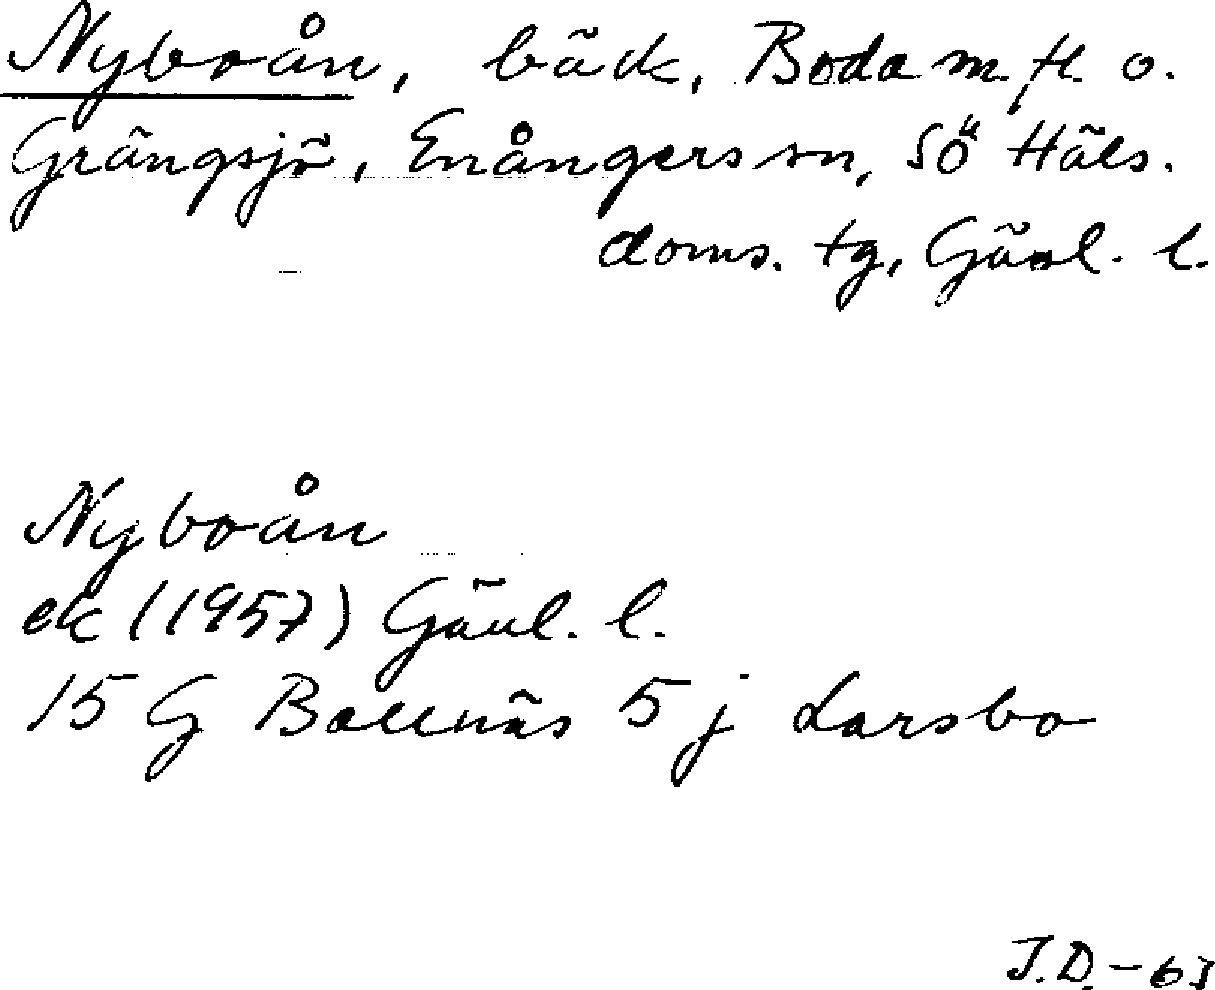 Nyboån, bäck, Boda m. fl. o.
Grängsjö, Enångers sn, SÖ Häls.
doms. tg, Gävl. l.
Nyboån
ek (1957) Gävl. l.
15 G Bollnäs 5 j Larsbo
J.D. - 63